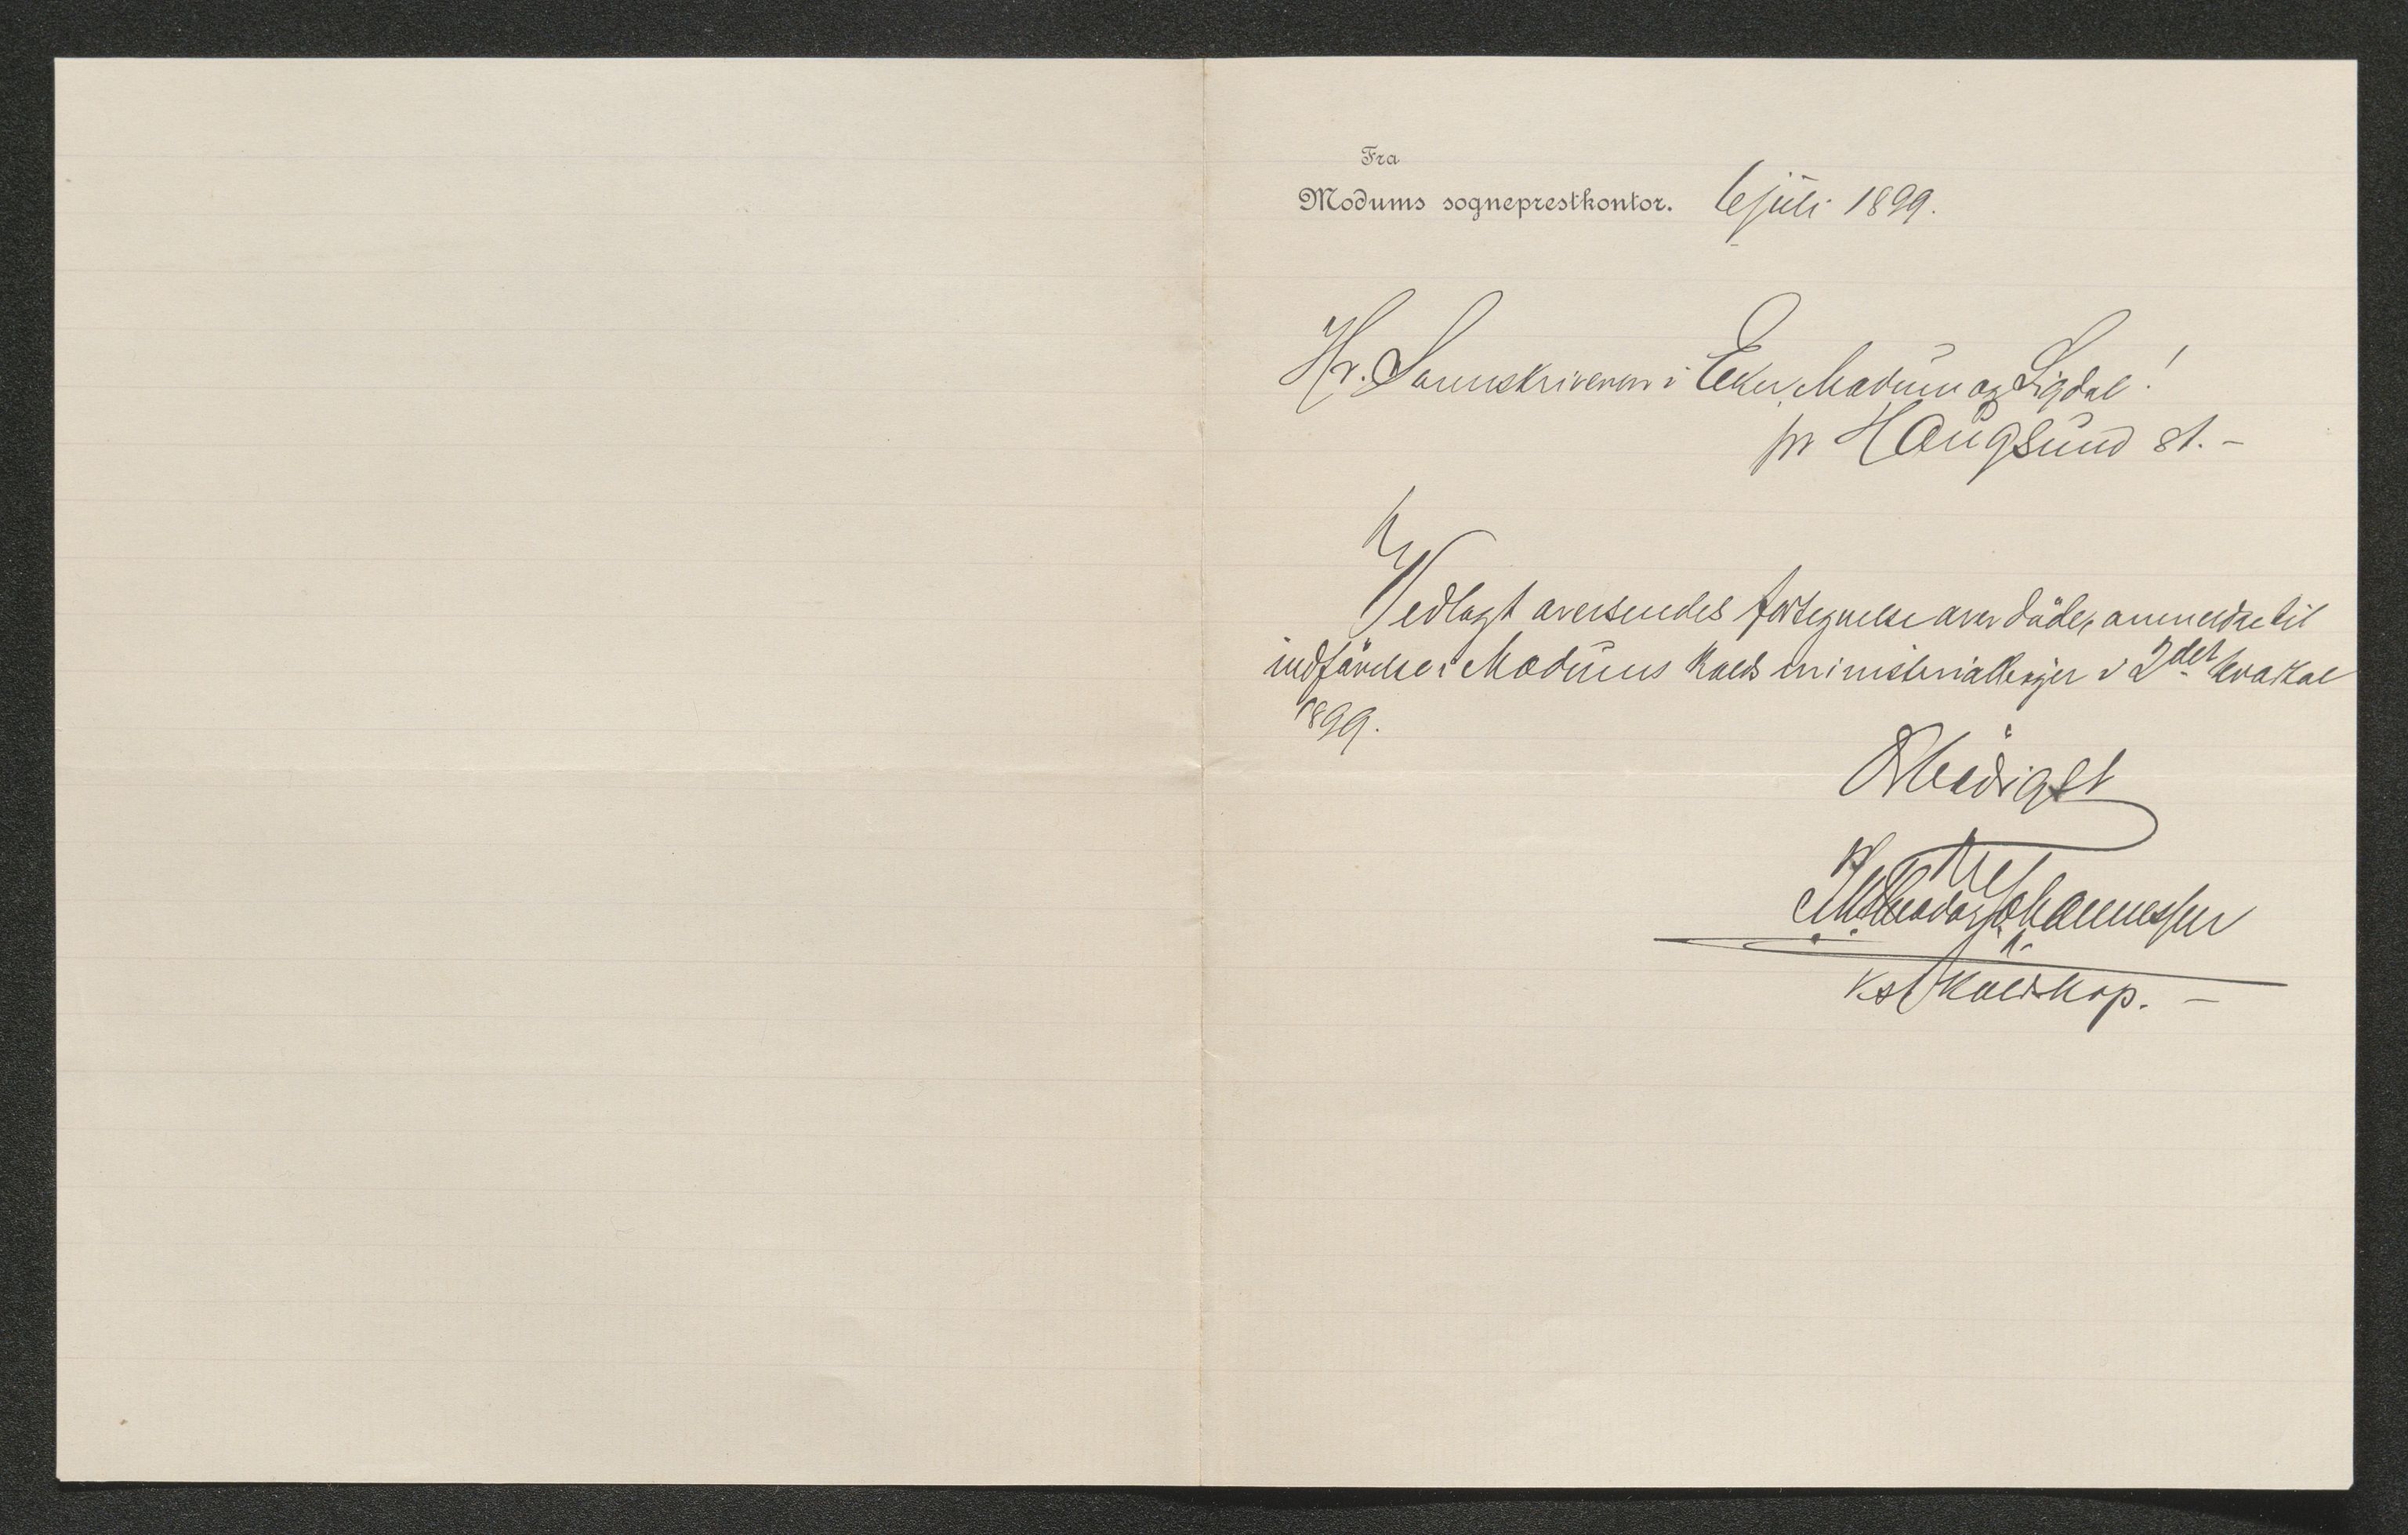 Fra
Modums sogneprestkontor. 6 juli 1899.
Hr. Sorenskriveren i Eker, Modum og Sigdal!
pr Haugsund st. –
Vedlagt oversendes fortegnelse over døde, anmeldte til
indførelse i Modums kalds ministerialbøger i 2det kvartal
1899.
Ærbødigst
Johannessen
kst kaldskap. –